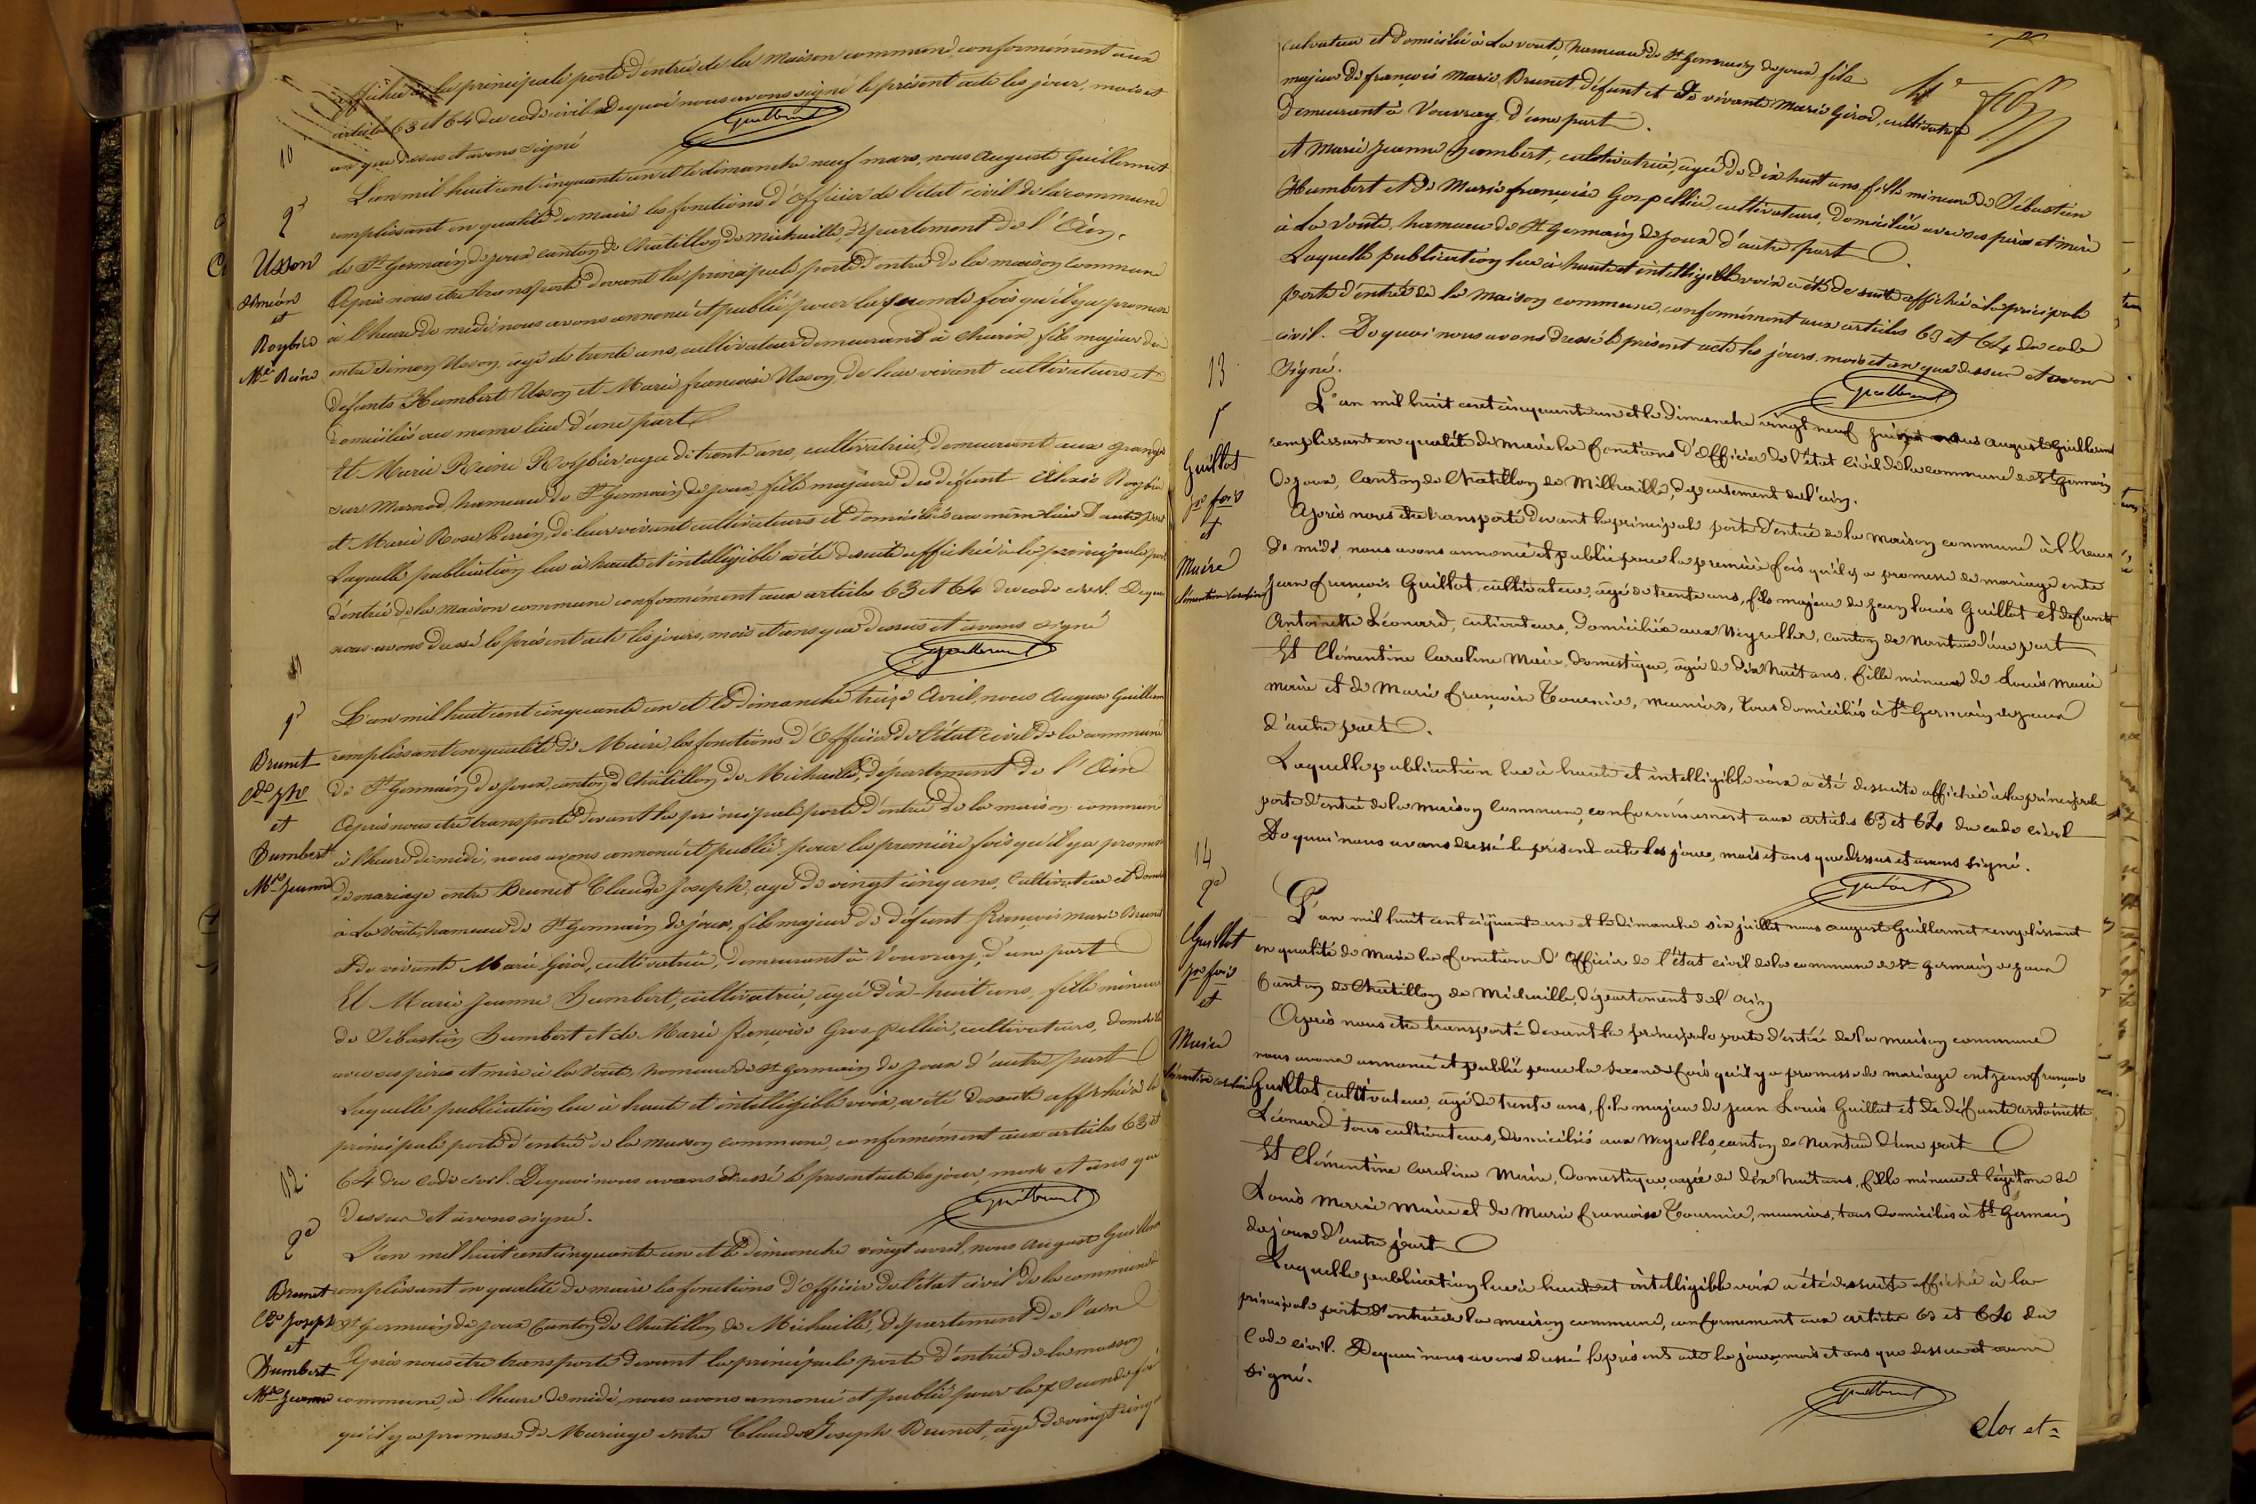 affichée à la principale porte d'entrée de la maison commune, conformément aux
articles 63 et 64 du code civil. De quoi nous avons signé le présent acte les jour, mois et
an que dessus et avons signé
Guillermet
10
2e
Usson
Siméon
et
Roybier
Mie Reine
L'an mil huit cent cinquante un et le dimanche neuf mars, nous Auguste Guillermet
remplissant en qualité de maire les fonctions d'officier de l'état civil de la commune
de St Germain de joux canton de Châtillon de Michaille, département de l'Ain.
Après nous être transporté devant la principale porte d'entrée de la maison commune
à l'heure de midi, nous avons annoncé et publié pour la seconde fois qu'il y a promesse
entre Simon Usson, agé de trente ans, cultivateur demeurant à Charix fils majeur de
défunts Humbert Usson et Marie françoise Usson, de leur vivant cultivateurs et
domiciliés au meme lieu d'une part
Et Marie Reine Roybier agée de trente ans, cultivatrice, demeurant aux granges
sur Marnod, hameau de St Germain de joux, fille majeure des défunt Alexis Roybier
et Marie Rose Perrin, de leur vivant cultivateurs et domiciliés au même lieu d'autre part
Laquelle publication lue à haute et intelligible a été de suite affichée à la principale porte
d'entrée de la maison commune conformément aux articles 63 et 64 du code civil. De quoi
nous avons dressé le présent acte les jours, mois et ans que dessus et avons signé
Guillermet
11
1e
Brunet
Cde Jph
et
Humbert
Mie Jeanne
L'an mil huit cent cinquante un et le dimanche treize Avril, nous Auguste Guillerm
remplissant en qualité de Maire les fonctions d'Officier de l'état civil de la commune
de St Germain de Joux, canton de Châtillon de Michaille, département de l'Ain
Après nous être transporté devant la principale porte d'entrée de la maison commune
à l'heure de midi, nous avons annoncé et publié pour la première fois qu'il y a promesse
de mariage entre Brunet Claude Joseph, agé de vingt cinq ans, Cultivateur et domi
à La Voûte, hameau de St Germain de joux, fils majeur de défunt François marie Brunet
et de vivante Marie Girod, cultivatrice, demeurant à Vouvray, d'une part
Et Marie Jeanne Humbert, cultivatrice, agée dix-huit ans, fille mineure
de Sébastien Humbert et de Marie françoise Gros pellier, cultivateurs, domiciliée
avec ses père et mère à la Voute, hameau de St Germain de Joux d'autre part
Laquelle publication lue à haute et intelligible voix, a été de suite affichée à la
principale porte d'entrée de la maison commune, conformément aux articles 63 et
64 du Code civil. De quoi nous avons dressé le présent acte les jour, mois et ans que
dessus et avons signé.
Guillermet
12.
2e
Brunet
Cde Joseph
et
Humbert
Mie Jeanne
L'an mil huit cent cinquante un et le dimanche vingt avril, nous August Guillerm
remplissant en qualité de maire les fonctions d'officier de l'état civil de la commune de
St Germain de Joux Canton de Chatillon de Michaille, Département de l'ain
Après nous être transporté devant la principale porte d'entrée de la maison
commune, à l'heure de midi, nous avons annoncé et publié pour la Seconde fois
qu'il y a promesse de Mariage entre Claude Joseph Brunet, agé de vingt cinq
cultivateur et domicilié à La voute, hameau de St Germain de joux fils
majeur de françois Marie Brunet, défunt et de vivante Marie Girod, cultivatrice
demeurant à Vouvray, d'une part.
et Marie Jeanne Humbert, cultivatrice, agée de dix huit ans, fille mineure de Sébastien
Humbert et de Marie françoise Gos pellier, cultivateurs, domiciliée avec ses père et mère
à La Voute, hameau de St Germain de joux d'autre part.
Laquelle publication lue à haute et intelligible voix a été de suite affichée à la principale
porte d'entrée de la Maison commune, conformément aux articles 63 et 64 du code
civil. De quoi nous avons dressé le présent acte les jours, mois et an que dessus et avons
signé.
Guillermet
13
1e
Guillot
Jn fois
et
Maire
Clémentine Caroline
L'an mil huit cent cinquante un et le dimanche vingt neuf juin nous Auguste Guillermet
remplissant en qualité de maire les fonctions d'Officier de l'état civil de la commune de St Germain
de Joux, Canton de Chatillon de Michaille, département de l'ain.
Après nous être transporté devant la principale porte d'entrée de la maison commune à l'heure
de midi, nous avons annoncé et publié pour la première fois qu'il y a promesse de mariage entre
Jean François Guillot, cultivateur, agé de trente ans, fils majeur de Jean Louis Guillot et défunte
Antoinette Léonard, cultivateurs, domiciliés aux Neyrolles, canton de Nantua d'une part
Et Clémentine Caroline Maire, domestique, agée de dix huit ans, fille mineure de Louis Marie
Maire et de Marie françoise Tournier, meuniers, tous domiciliés à St Germain de joux
d'autre part.
Laquelle publication lue à haute et intelligible voix a été de suite affichée à la principale
porte d'entrée de la maison Commune, conformément aux articles 63 et 64 du code civil
De quoi nous avons dressé le présent acte les jour, mois et ans que dessus et avons signé.
14
2e
Guillot
Jn fois
et
Maire
Clémentine Caroline
L'an mil huit cent cinquante un et le dimanche six juillet nous august Guillermet remplissant
en qualité de Maire les fonctions d'Officier de l'état civil de la commune de St Germain de joux
Canton de Châtillon de Michaille, département de l'Ain
Après nous être transporté devant la principale porte d'entrée de la maison commune
nous avons annoncé et publié pour la Seconde fois qu'il y a promesse de mariage entre jean françois
Guillot, cultivateur, agé de trente ans, fils majeur de Jean Louis Guillot et de défunte Antoinette
Léonard tous cultivateurs, domiciliés aux Neyrolles, canton de Nantua d'une part
Et Clémentine Caroline Maire, Domestique, agée de dix huit ans, fille mineure et légitime de
Louis Marie Maire et de Marie françoise Tournier, meuniers, tous domiciliés à St Germain
de joux d'autre part
Laquelle publication lue à haute et intelligible voix a été de suite affichée à la
principale porte d'entrée de la maison commune, conformement aux articles 63 et 64 du
Code civil. De quoi nous avons dressé le présent acte les jour, mois et ans que dessus et avons
signé.
Guillermet
Clos et =